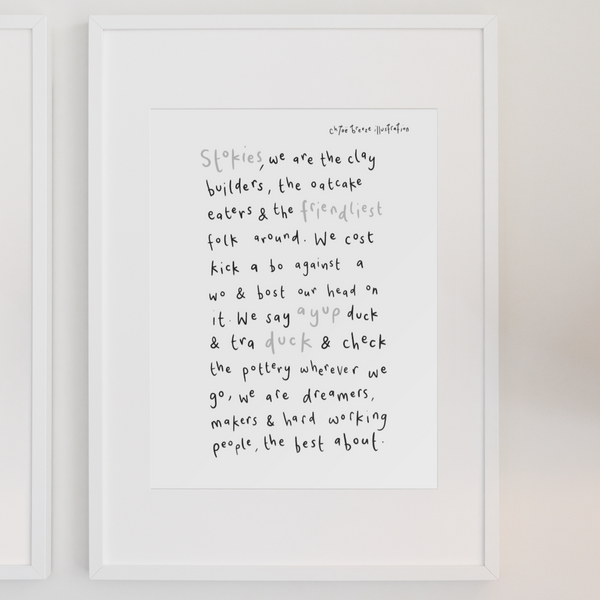 chloe breeze illustration
Stokies, we are the clay
builders, the oatcake
eaters & the friendliest
folk around. We cost
kick a bo against a
wo & bost our head on
it. We say ayup duck
& tra duck & check
the pottery wherever we
go, we are dreamers,
makers & hard working
people, the best about.